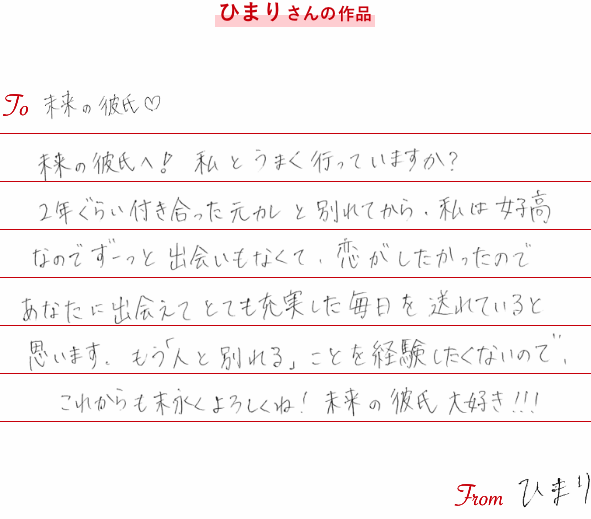 ひまりさんの作品
To 未来の彼氏♡
未来の彼氏へ! 私とうまく行っていますか?
2年ぐらい付き合った元カレと別れてから、私は女子高
なのでずーっと出会いもなくて、恋がしたかったので
あなたに出会えてとても充実した毎日を送れていると
思います。もう「人と別れる」ことを経験したくないので、
これからも末永くよろしくね! 未来の彼氏 大好き!!!
From ひまり